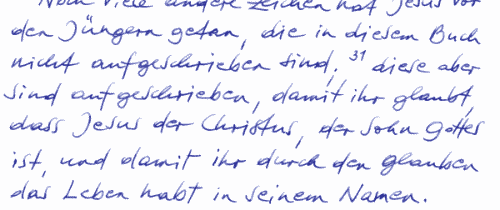 Noch viele andere Zeichen hat Jesus vor
den Jüngern getan, die in diesem Buch
nicht aufgeschrieben sind. 31 diese aber
sind aufgeschrieben, damit ihr glaubt,
dass Jesus der Christus, der Sohn Gottes
ist, und damit ihr durch den Glauben
das Leben habt in seinem Namen.